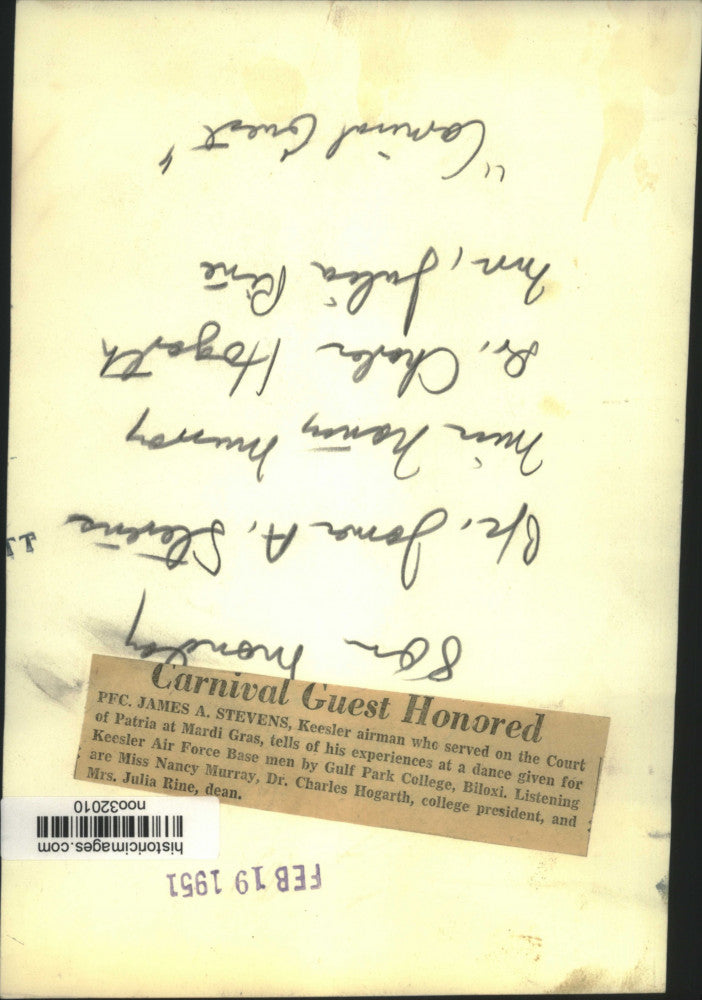 Carnival Guest Honored
PFC. JAMES A. STEVENS, Keesler airman who served on the Court
of Patria at Mardi Gras, tells of his experiences at a dance given for
Keesler Air Force Base men by Gulf Park College, Biloxi. Listening
are Miss Nancy Murray, Dr. Charles Hogarth, college president, and
Mrs. Julia Rine, dean.
FEB 19 1951
historicimages.com
noo32010
8 on Monday
Pfc. James A. Stevens
Miss Nancy Murray
Dr. Charles Hogarth
Mrs. Julia Rine
"Carnival Guest"
TT